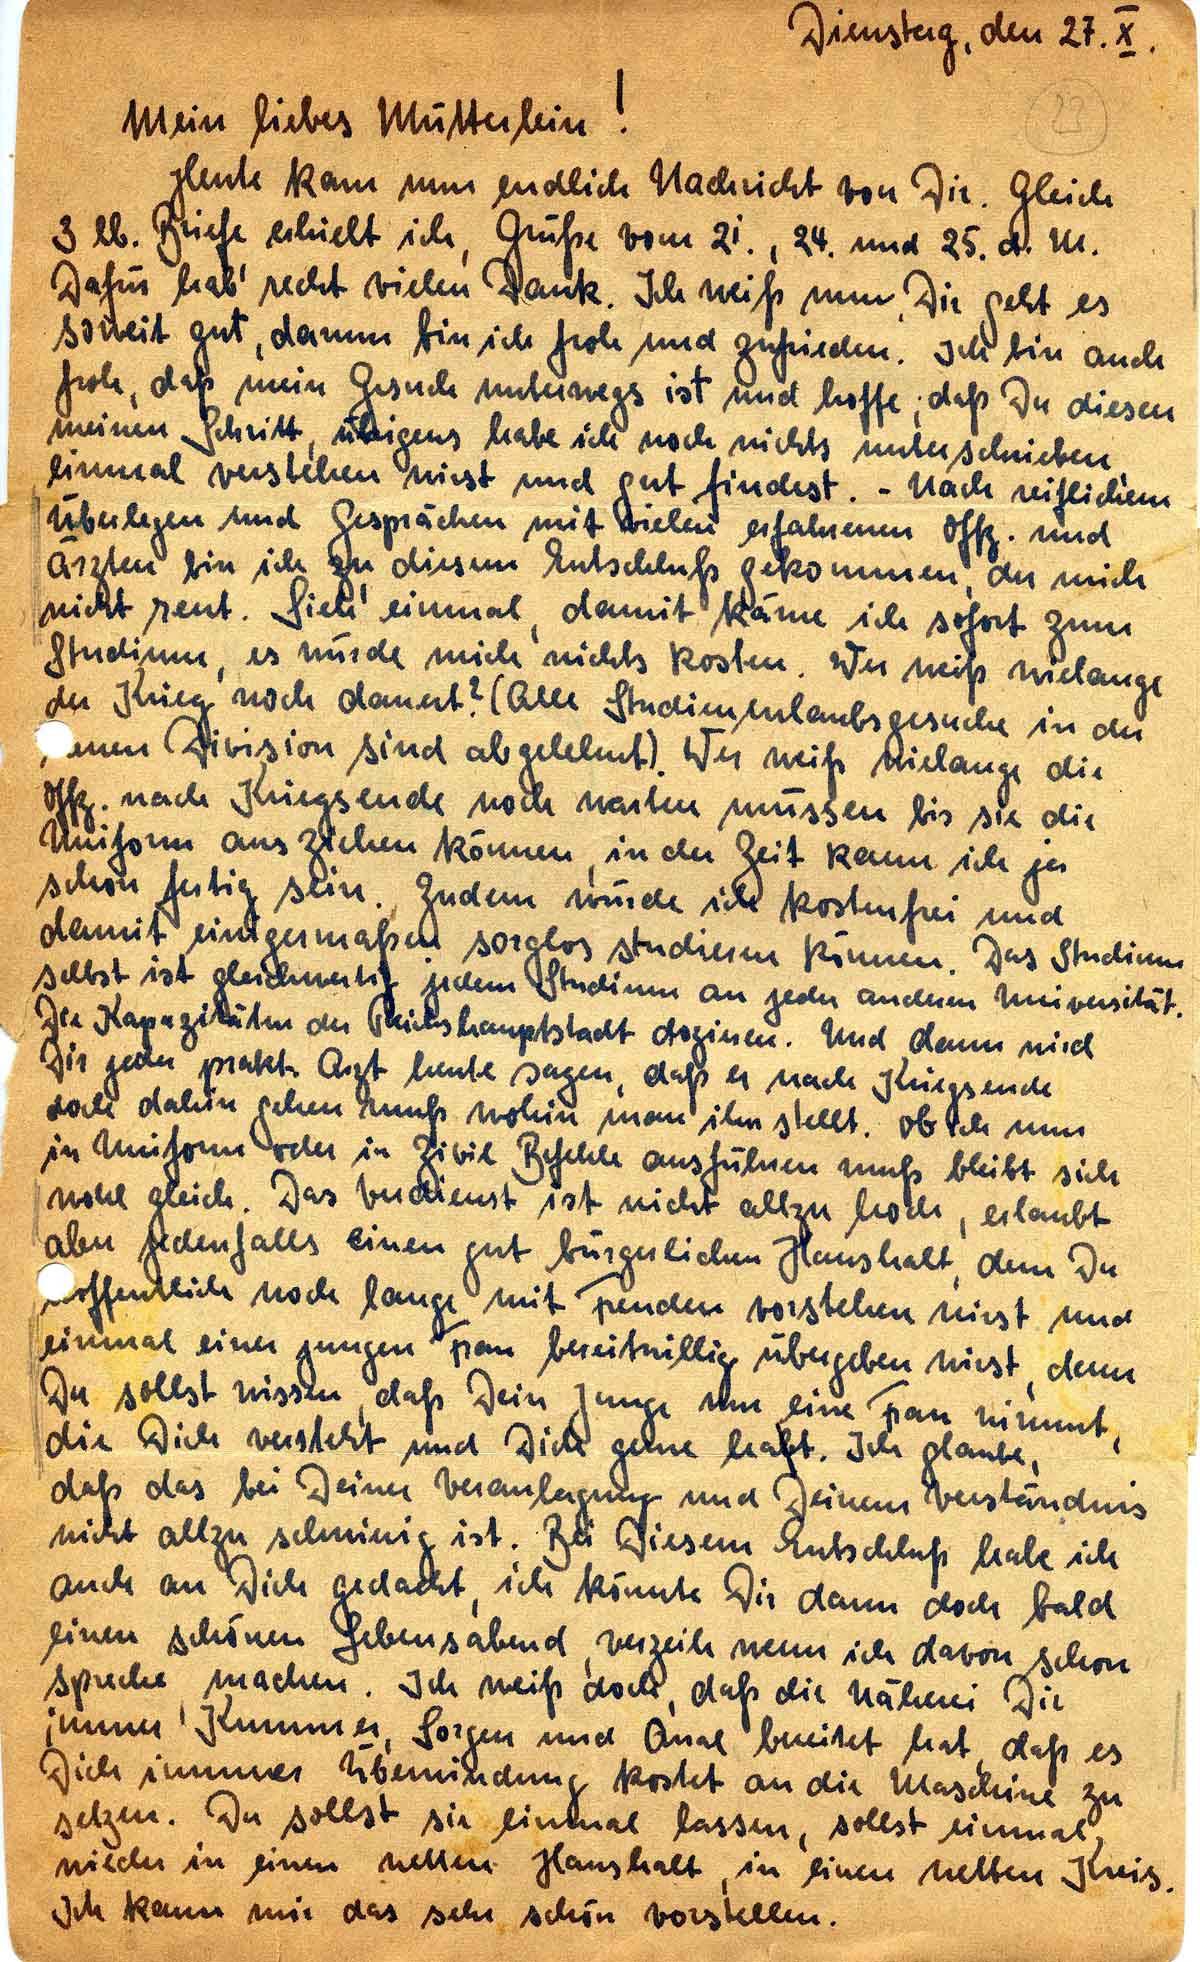 Dienstag, den 27. X.
23
Mein liebes Mütterlein!
Heute kam nun endlich Nachricht von Dir. Gleich
3 lb. Briefe erhielt ich, Grüße vom 21., 24. und 25. d. M.
Dafür hab' recht vielen Dank. Ich weiß nun, Dir geht es
soweit gut, darum bin ich froh und zufrieden. Ich bin auch
froh, daß mein Gesuch unterwegs ist und hoffe, daß Du diesen
meinen Schritt, übrigens habe ich noch nichts unterschrieben,
einmal verstehen wirst und gut findest. - Nach reiflichem
Überlegen und Gesprächen mit vielen erfahrenen Offz. und
Ärzten bin ich zu diesem Entschluß gekommen, der mich
nicht reut. Sieh' einmal, damit käme ich sofort zum
Studium, es würde mich nichts kosten. Wer weiß wielange
der Krieg noch dauert? (Alle Studienurlaubsgesuche in der
Division sind abgelehnt). Wer weiß wielange die
Offz. nach Kriegsende noch warten müssen bis sie die
Uniform ausziehen können, in der Zeit kann ich ja
schon fertig sein. Zudem würde ich kostenfrei und
damit einigermaßen sorglos studieren können. Das Studium
selbst ist gleichwertig jedem Studium an jeder anderen Universität.
Die Kapazitäten der Reichshauptstadt dozieren. Und dann wird
Dir jeder prakt. Arzt heute sagen, daß er nach Kriegsende
doch dahin gehen muß wohin man ihn stellt. Ob ich nun
in Uniform oder in Zivil Befehle ausführen muß bleibt sich
wohl gleich. Das Verdienst ist nicht allzu hoch, erlaubt
aber jedenfalls einen gut bürgerlichen Haushalt, dem Du
hoffentlich noch lange mit Freuden vorstehen wirst und
einmal einer jungen Frau bereitwillig übergeben wirst, denn
Du sollst wissen, daß Dein Junge nur eine Frau nimmt,
die Dich versteht und Dich gerne hat. Ich glaube,
daß das bei Deiner Veranlagung und Deinem Verständnis
nicht allzu schwierig ist. Bei Diesem Entschluß habe ich
auch an Dich gedacht, ich könnte Dir dann doch bald
einen schönen Lebensabend, verzeih wenn ich davon schon
spreche, machen. Ich weiß doch, daß die Näherei Dir
immer Kummer, Sorgen und Qual bereitet hat, daß es
Dich immer Überwindung kostet an die Maschine zu
setzen. Du sollst sie einmal lassen, sollst einmal,
wieder in einen netten Haushalt, in einen netten Kreis.
Ich kann mir das sehr schön vorstellen.